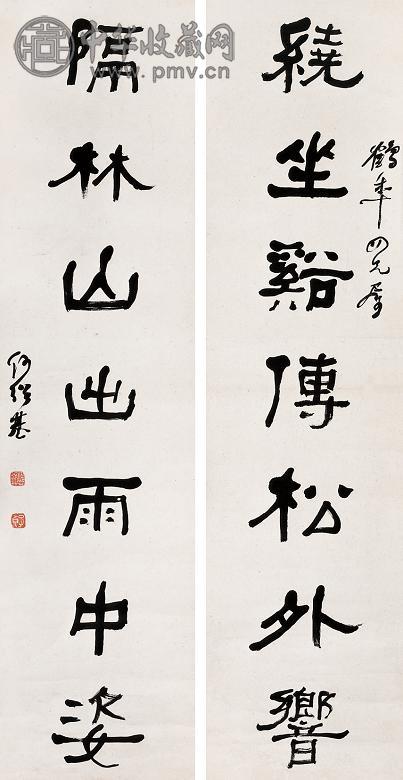 鶴年四兄属
繞坐谿傳松外響
隔林山出雨中姿
何紹基
中华收藏网
www.pmv.cn